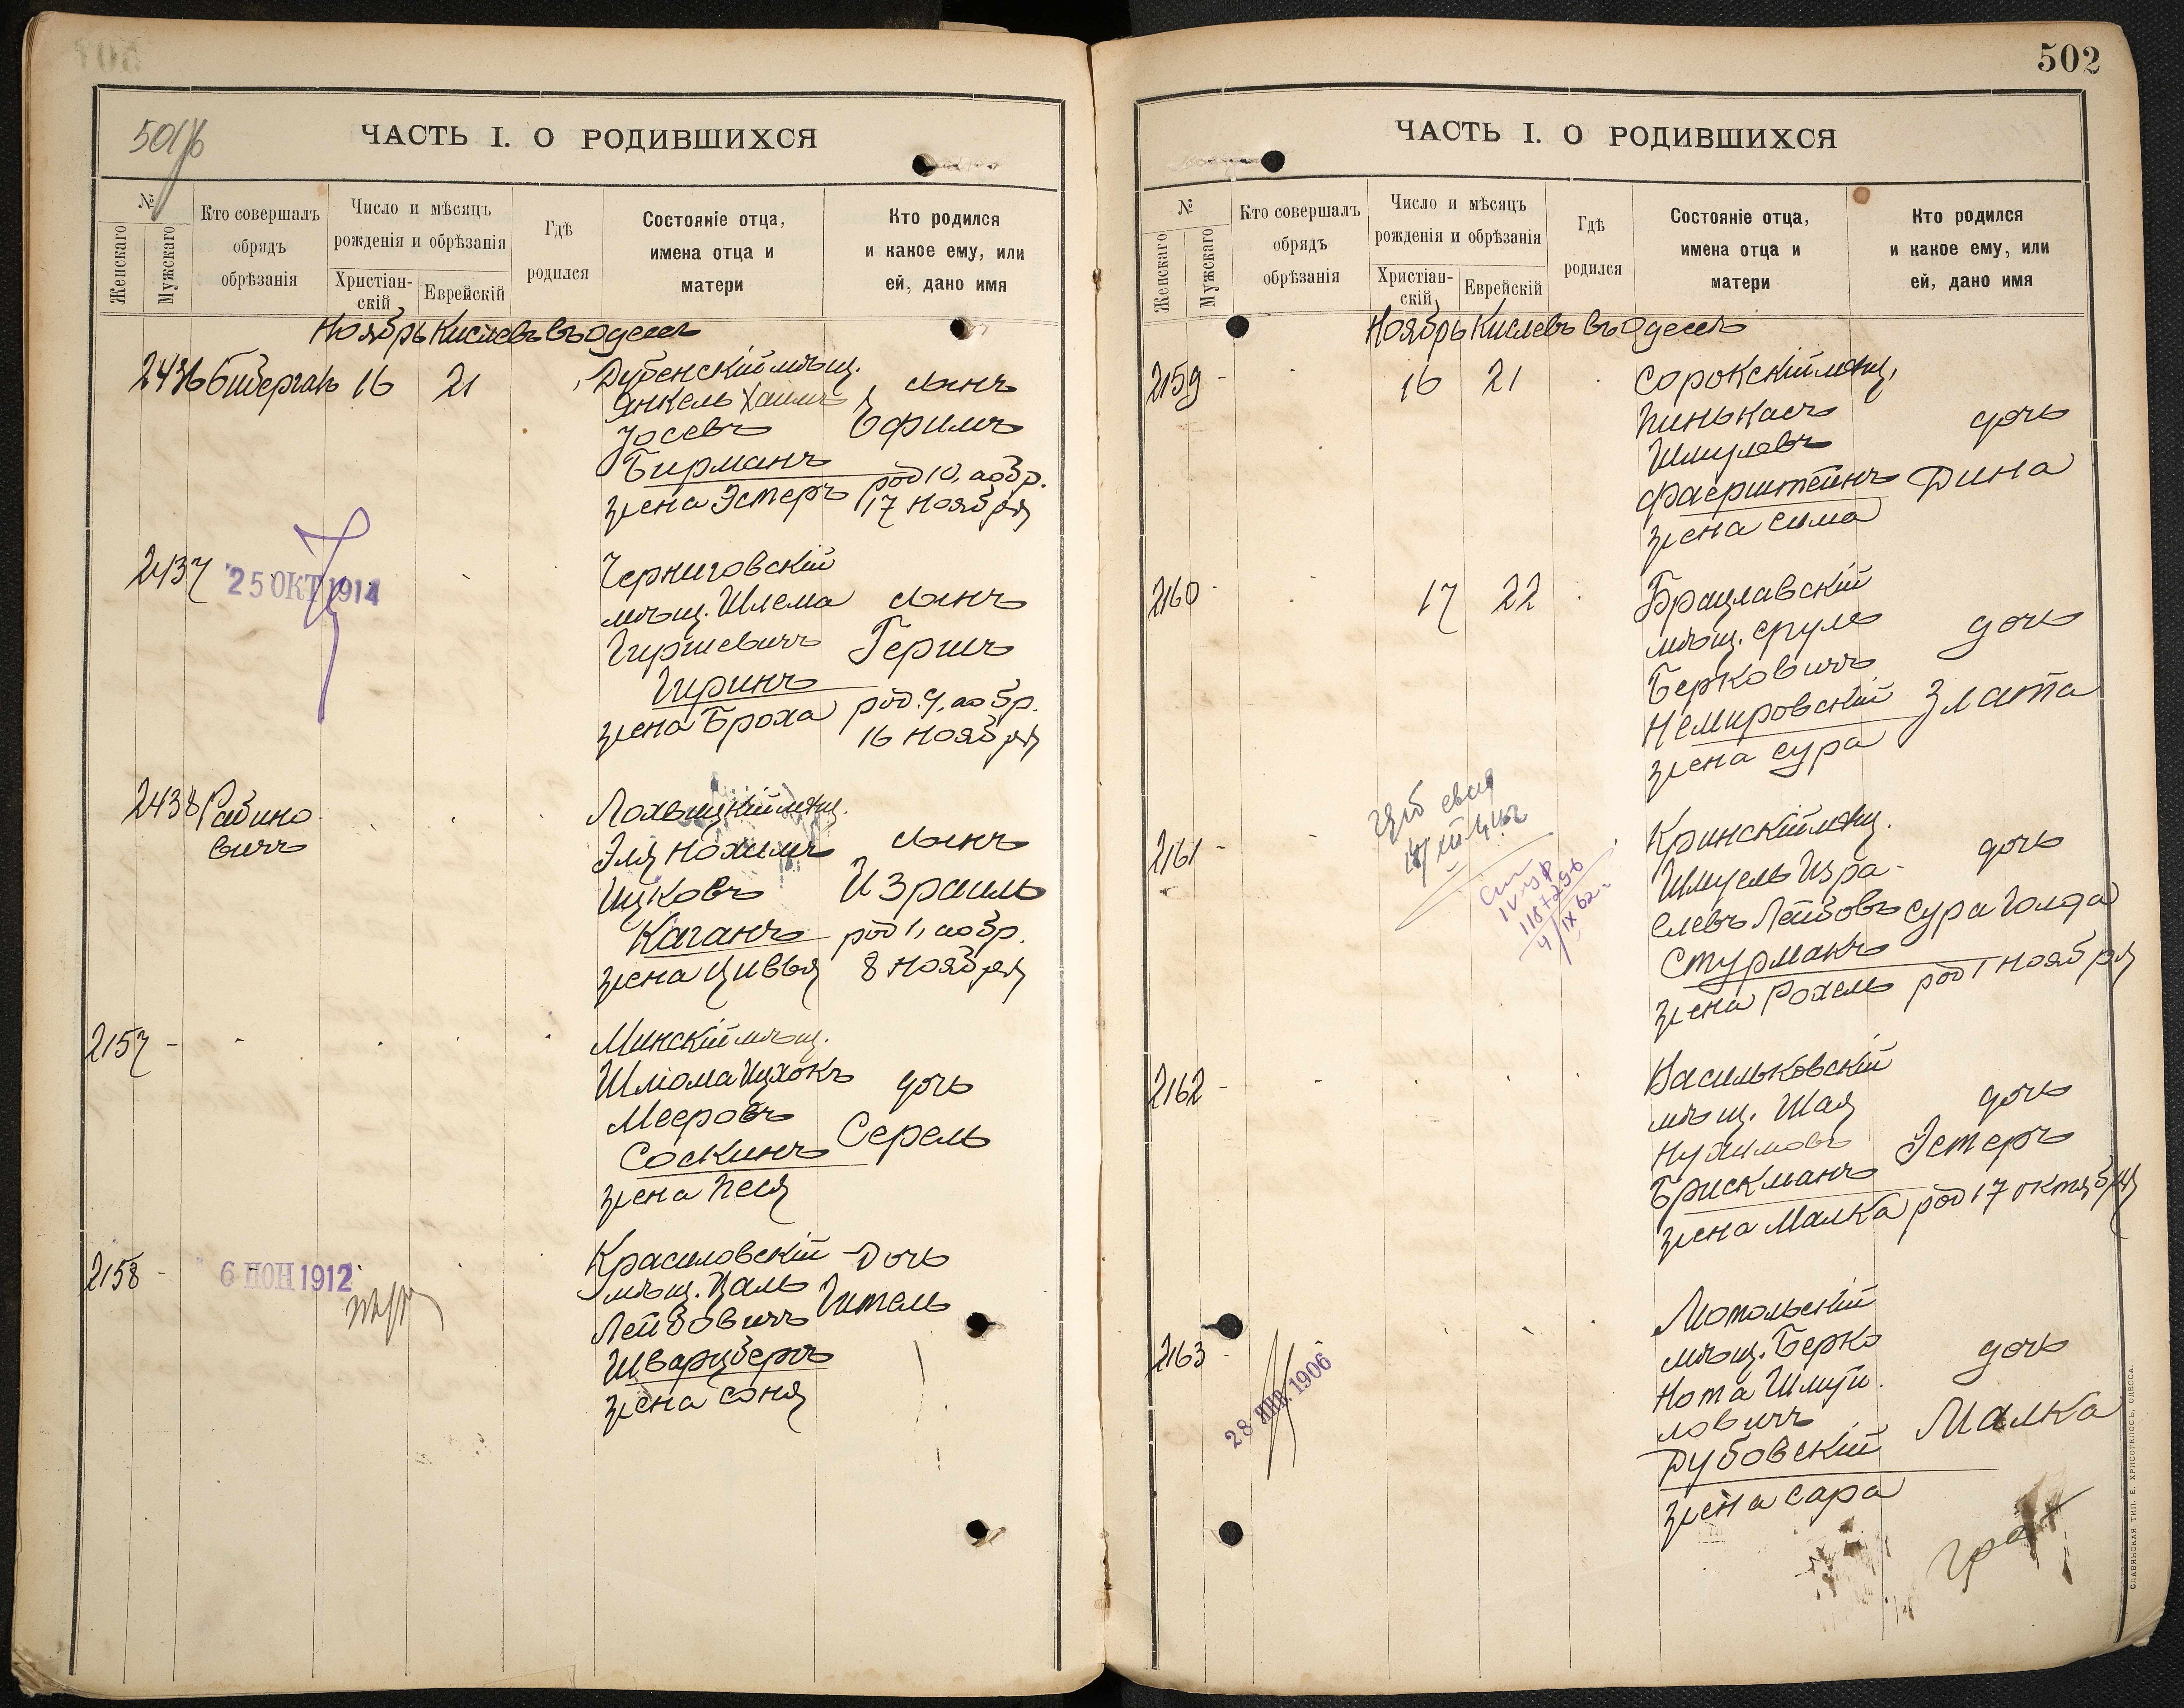 501/б
ЧАСТЬ I. О РОДИВШИХСЯ
№
Женскаго
Мужскаго
Кто совершалъ
обрядъ
обрѣзанія
Число и мѣсяцъ
рожденія и обрѣзанія
Христіан-
скій
Еврейскій
Гдѣ
родился
Состояніе отца,
имена отца и
матери
Кто родился
и какое ему, или
ей, дано имя
Ноябрь Кислевъ въ Одессѣ
2436
16
21
Дубенскій мѣщ.
Янкель Хаимъ
Іосевъ
Бирманъ
жена Эстеръ
сынъ
Ефимъ
род 10, а обр.
17 Ноября
2437
25 ОКТ 1914
Черниговскій
мѣщ. Шлема
Гиршевичъ
Гиринъ
жена Броха
сынъ
Гершъ
род. 9, а обр.
16 Ноября
2438
Рабино
вичъ
Лохвицкій мѣщ.
Эля Нохимъ
Ицковъ
Каганъ
жена Цивья
сынъ
Израиль
род 1, а обр.
8 Ноября
2157
Минскій мѣщ.
Шліома Ицхокъ
Мееровъ
Соскинъ
жена Песя
дочь
Серель
2158
6 ІЮН 1912
Красиловскій
мѣщ. Цаль
Лейбовичъ
Шварцберъ
жена Соня
Дочь
Гитель
502
ЧАСТЬ I. О РОДИВШИХСЯ
№
Женскаго
Мужскаго
Кто совершалъ
обрядъ
обрѣзанія
Число и мѣсяцъ
рожденія и обрѣзанія
Христіан-
скій
Еврейскій
Гдѣ
родился
Состояніе отца,
имена отца и
матери
Кто родился
и какое ему, или
ей, дано имя
Ноябрь Кислевъ въ Одессѣ
2159
16
21
Сорокскій мѣщ.
Пинькасъ
Шмулевъ
Фаерштейнъ
жена Сима
дочь
Дина
2160
17
22
Брацлавскій
мѣщ. Сруль
Берковичъ
Немировскій
жена Сура
дочь
Злата
2161
118+256
4/IX 62
Кринскій мѣщ.
Шмуель Изра-
елевъ Лейбовъ
Стурмакъ
жена Рохель
дочь
Сура Голда
род 1 Ноября
2162
Васильковскій
мѣщ. Шая
Нухимовъ
Брискманъ
жена Малка
дочь
Эстеръ
род 17 октября
2163
28 ЯНВ. 1906
Мотольскій
мѣщ. Берко
Нота Шмуй
ловичъ
Дубовскій
жена Сара
дочь
Малка
СЛАВЯНСКАЯ ТИП. Е. ХРИСОГЕЛОСЪ, ОДЕССА.